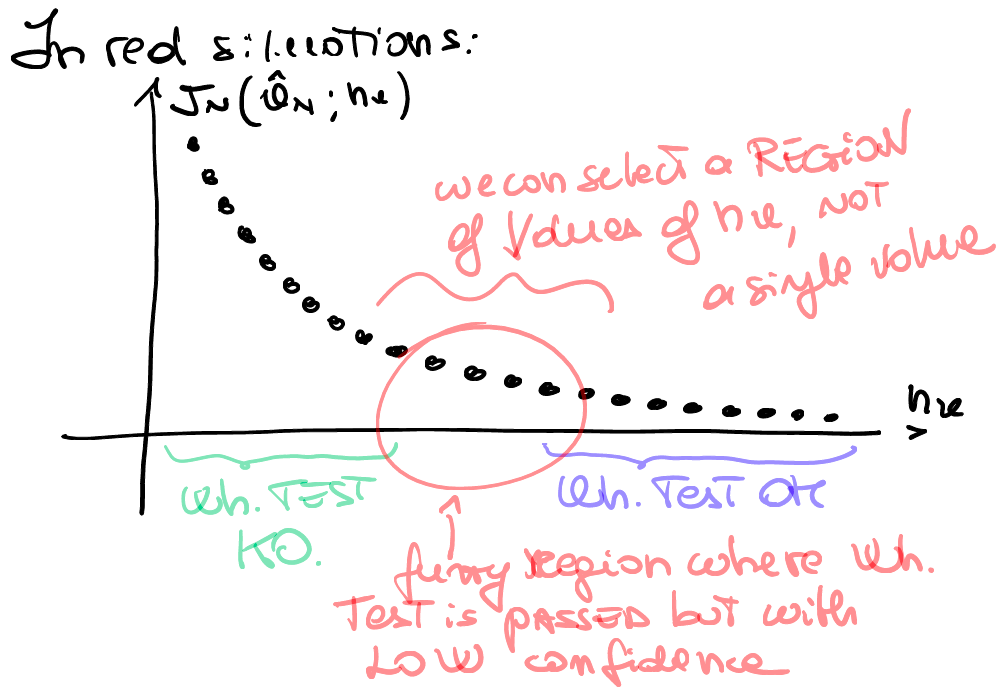 In real situations:
J_N(θ̂_N; n_θ)
we can select a REGION
of values of n_θ, NOT
a single value
n_θ
Wh. TEST
KO.
Wh. TEST OK
fuzzy region where Wh.
TEST is PASSED but with
LOW confidence